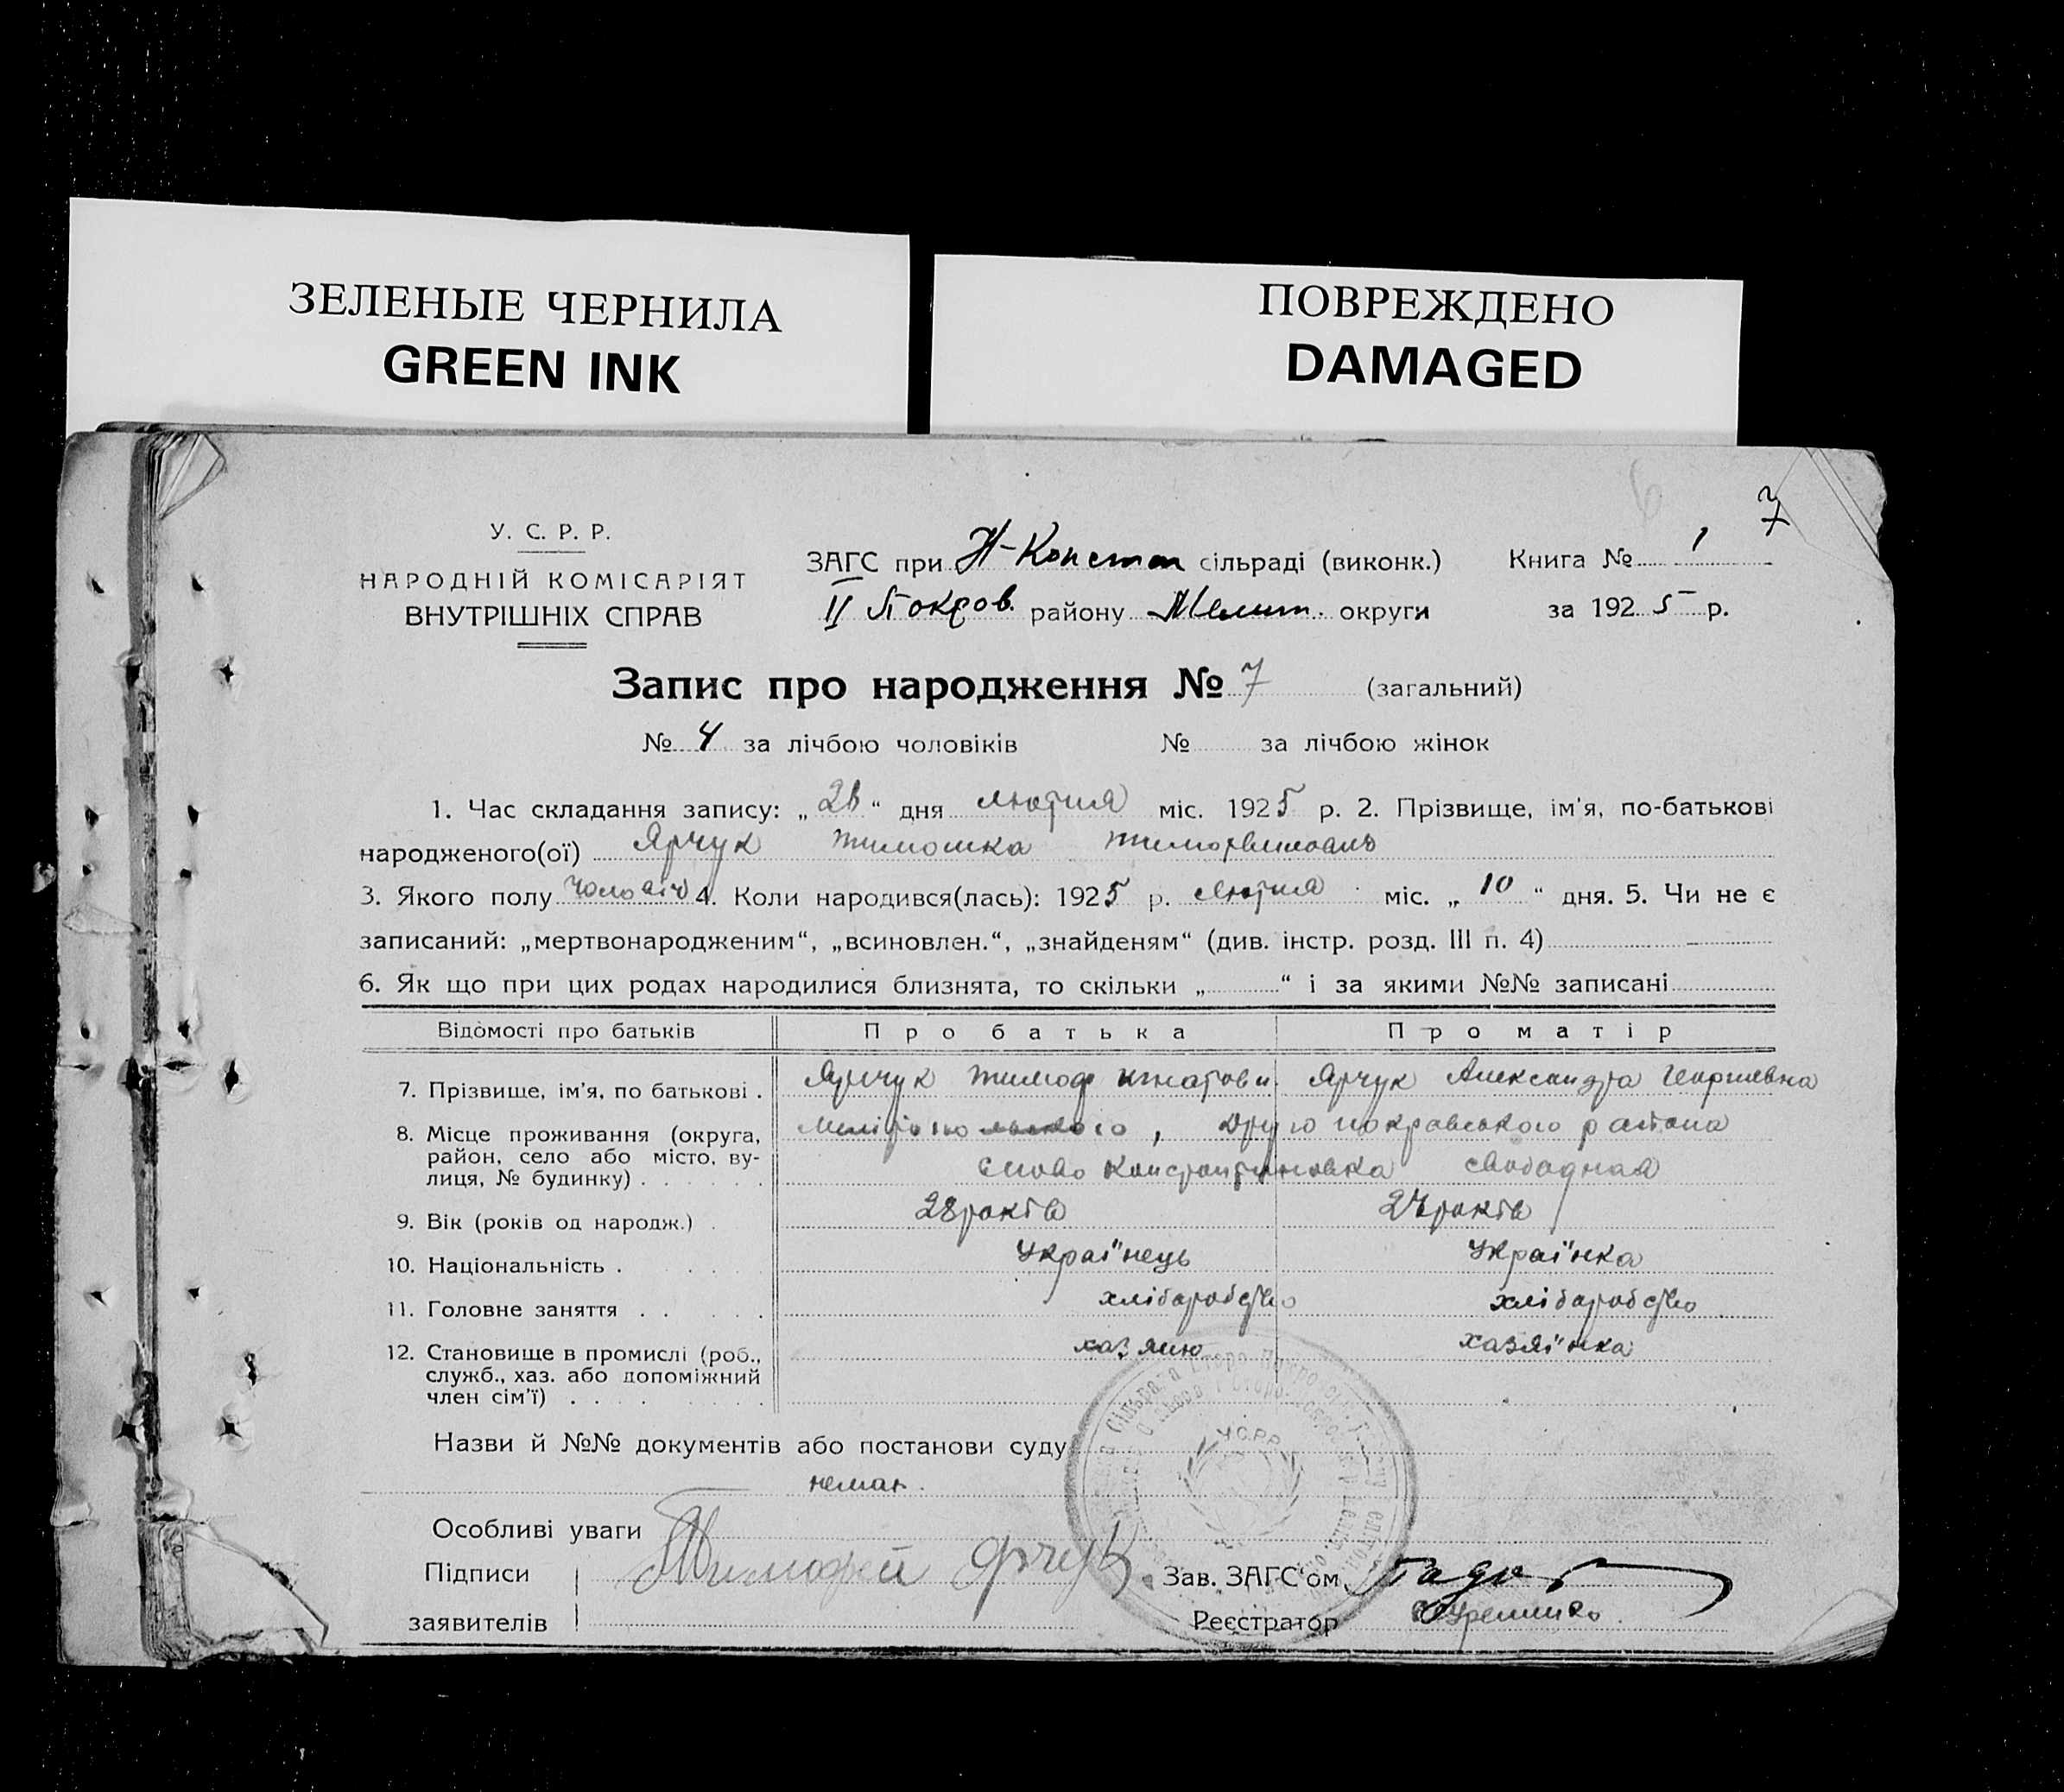 ЗЕЛЕНЫЕ ЧЕРНИЛА
GREEN INK
ПОВРЕЖДЕНО
DAMAGED
6 7
У. С. Р. Р.
НАРОДНІЙ КОМІСАРІЯТ
ВНУТРІШНІХ СПРАВ
ЗАГС при Н-Констан сільраді (виконк.)
II Покров. району Мелит. округи
Книга № 1
за 1925 р.
Запис про народження № 7 (загальний)
№ 4 за лічбою чоловіків № за лічбою жінок
1. Час складання запису: „28“ дня лютия міс. 1925 р. 2. Прізвище, ім'я, по-батькові
народженого(ої) Ярчук Тимошка
3. Якого полу чоловіч 4. Коли народився(лась): 1925 р. лютия міс. „10“ дня. 5. Чи не є
записаний: „мертвонародженим“, „всиновлен.“, „знайденям“ (див. інстр. розд. III п. 4)
6. Як що при цих родах народилися близнята, то скільки „ “ і за якими №№ записані
Відомості про батьків Про батька Про матір
7. Прізвище, ім'я, по батькові . Ярчук Тимоф Игнатови Ярчук Александра Георгиевна
8. Місце проживання (округа, район, село або місто, вулиця, № будинку) , Друго покравського района
Константиновка свободная
9. Вік (років од народж.) . 28 років 24 років
10. Національність . Украї"нець Украї"нка
11. Головне заняття . . хлібаробство хлібаробство
12. Становище в промислі (роб., служб., хаз. або допоміжний член сім'ї) . хазяїн хазяї"нка
Назви й №№ документів або постанови суду
немає.
У.С.Р.Р.
Особливі уваги
Підписи
заявителів
Тимофей Ярчук
Зав. ЗАГС'ом
Реєстратор